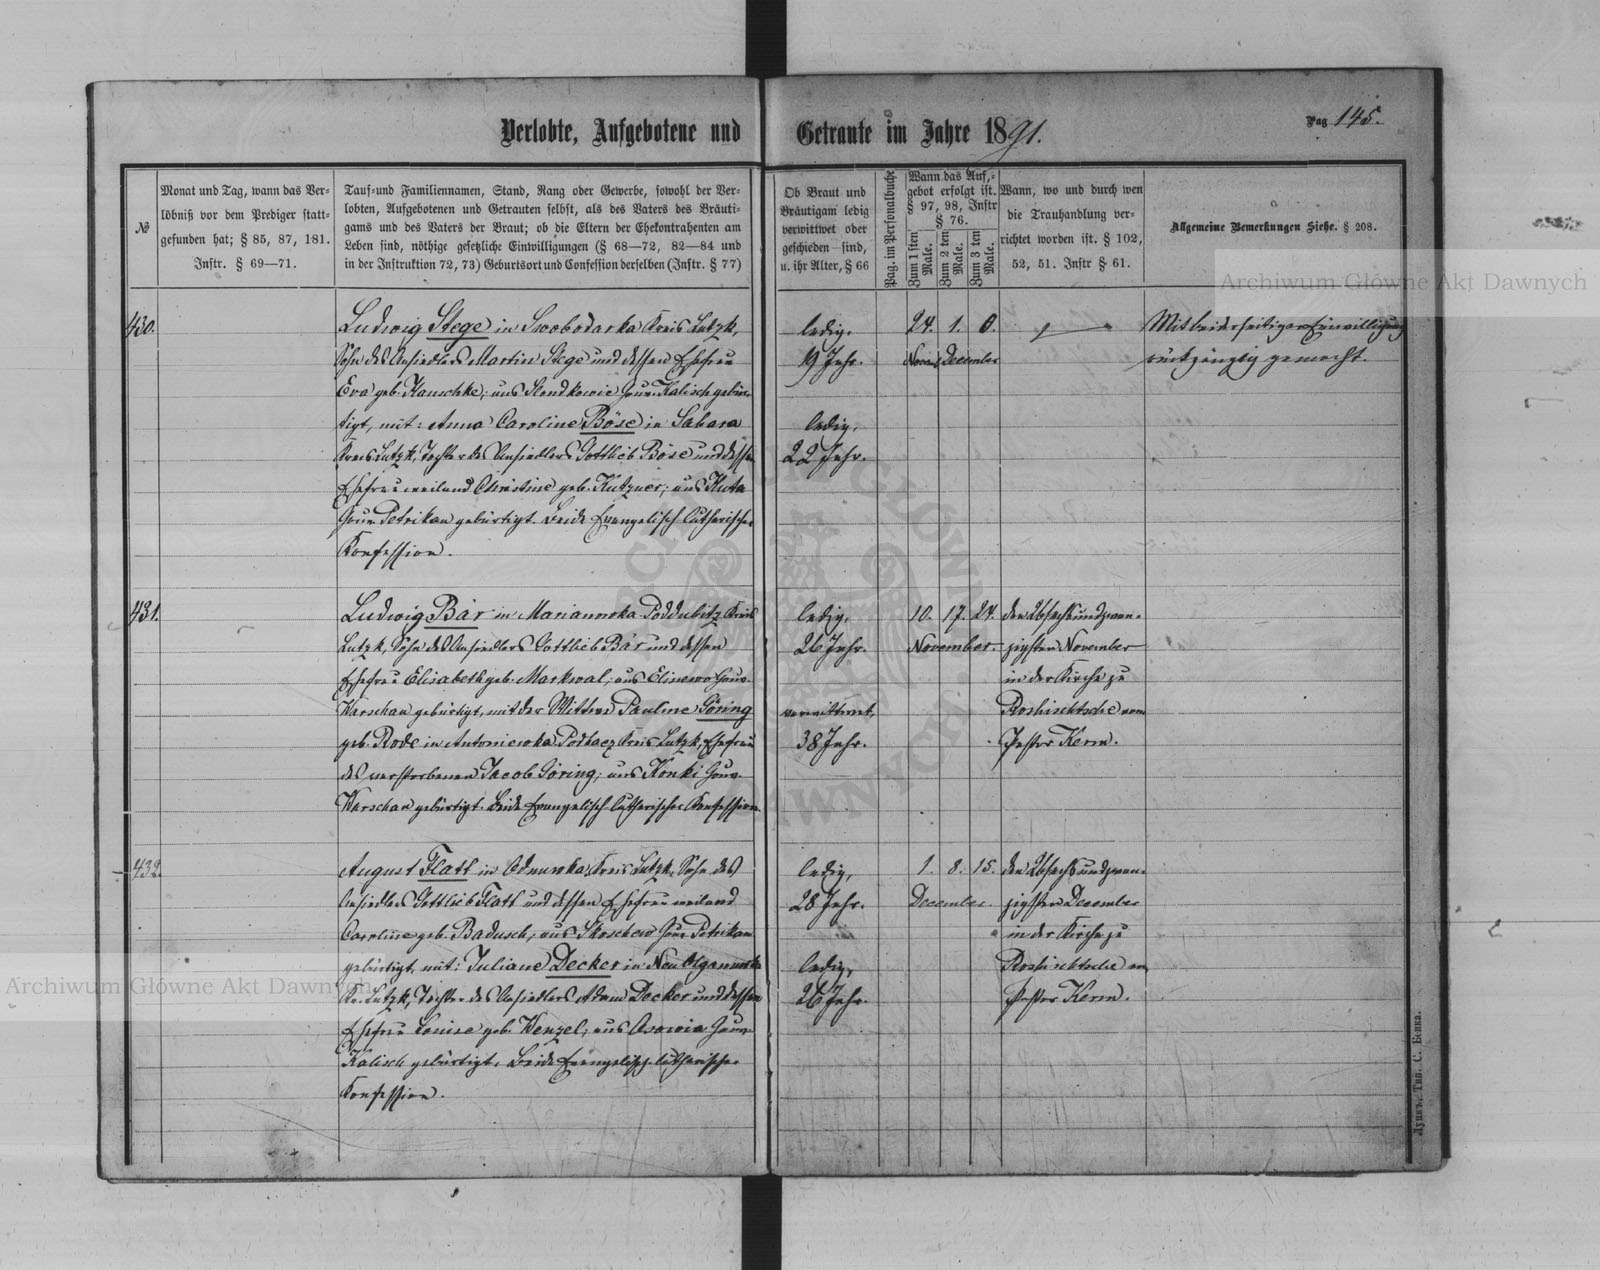 Verlobte, Aufgebotene und Getraute im Jahre 1891.
Pag 145.
№
Monat und Tag, wann das Ver-
löbniß vor dem Prediger statt-
gefunden hat; § 85, 87, 181.
Instr. § 69—71.
Tauf-und Familiennamen, Stand, Rang oder Gewerbe, sowohl der Ver-
lobten, Aufgebotenen und Getrauten selbst, als des Vaters des Bräuti-
gams und des Vaters der Braut; ob die Eltern der Ehekontrahenten am
Leben sind, nöthige gesetzliche Einwilligungen (§ 68—72, 82—84 und
in der Instruktion 72, 73) Geburtsort und Confession derselben (Instr. § 77)
Ob Braut und
Bräutigam ledig
verwittwet oder
geschieden sind,
u. ihr Alter, § 66
Pag. im Personalbuche
Wann das Auf-
gebot erfolgt ist.
§ 97, 98, Instr
§ 76.
Zum 1sten Male.
Zum 2 ten Male.
Zum 3 ten Male.
Wann, wo und durch wen
die Trauhandlung ver-
richtet worden ist. § 102,
52, 51. Instr § 61.
Allgemeine Bemerkungen Siehe. § 208.
Archiwum Główne Akt Dawnych
430.
Ludwig Stege in Swobodarka Kreis Lutzk,
Sohn des Ansiedlers Martin Stege und dessen Ehefrau
Eva geb. Kauschke; aus Gouv. Kalisch gebür-
tigt, mit: Anna Caroline Böse in Sabara
Kreis Lutzk, Tochter des Ansiedlers Gottlieb Böse und dessen
Ehefrau weiland Christine geb. Kutzner; aus Kuta
Gouv. Petrikau gebürtigt. Beide Evangelisch lutherischer
Konfession.
ledig,
19 Jahr.
ledig,
22 Jahr.
24. 1. 0.
Novem. December
Mit beiderseitiger Einwilligung
rückgängig gemacht.
431.
Ludwig Bär in Marianowka-Poddubitz Kreis
Lutzk, Sohn des Ansiedlers Gottlieb Bär und dessen
Ehefrau Elisabeth geb. Markwal; aus Elinowo Gouv.
Warschau gebürtigt, mit der Wittwe Pauline Göring
geb. Rode in Antoniewka-Podhacz Kreis Lutzk, Ehefrau
des verstorbenen Jacob Göring; aus Konki Gouv.
Warschau gebürtigt. Beide Evangelisch-lutherischer Konfession.
ledig,
26 Jahr.
verwittwet,
38 Jahr.
10. 17. 24.
November.
den 26 sechsundzwan-
zigsten November
in der Kirche zu
Roshischtsche vom
Pastor Kerm.
432.
August Flatt in Adamwka, Kreis Lutzk, Sohn des
Ansiedlers Gottlieb Flatt und dessen Ehefrau weiland
Caroline geb. Badusch; aus Skoschew Gouv. Petrikau
gebürtigt, mit: Juliane Decker in Neu Olganowka
Kr. Lutzk, Tochter des Ansiedlers Adam Decker und dessen
Ehefrau Louise geb. Wenzel; aus Osowia Gouv.
Kalisch gebürtigt. Beide Evangelisch-lutherischer
Konfession.
ledig,
28 Jahr.
ledig,
26 Jahr.
1. 8. 15.
December.
den 26 sechsundzwan-
zigsten December
in der Kirche zu
Roshischtsche vom
Pastor Kerm.
Archiwum Główne Akt Dawnych
Луцкъ, Тип. С. Бенка.